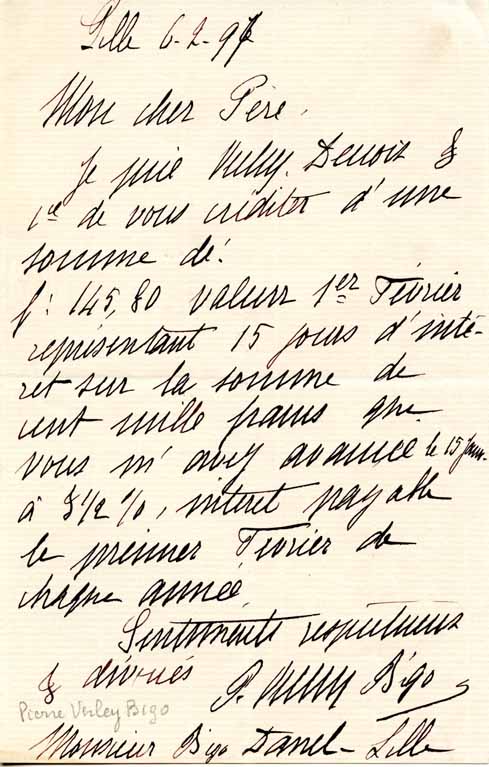 Lille 6-2-97
Mon cher Père,
Je prie Verley, Decroix &
Cie de vous créditer d'une
somme de:
f: 145,80 valeur 1er Février
représentant 15 jours d'inté-
rêt sur la somme de
cent mille francs que
vous m'avez avancée le 15 Janv.
à 3 1/2 %, intérêt payable
le premier Février de
chaque année
Sentiments respectueux
& dévoués
P. Verley Bigo
Pierre Verley Bigo
Monsieur Bigo Danel - Lille